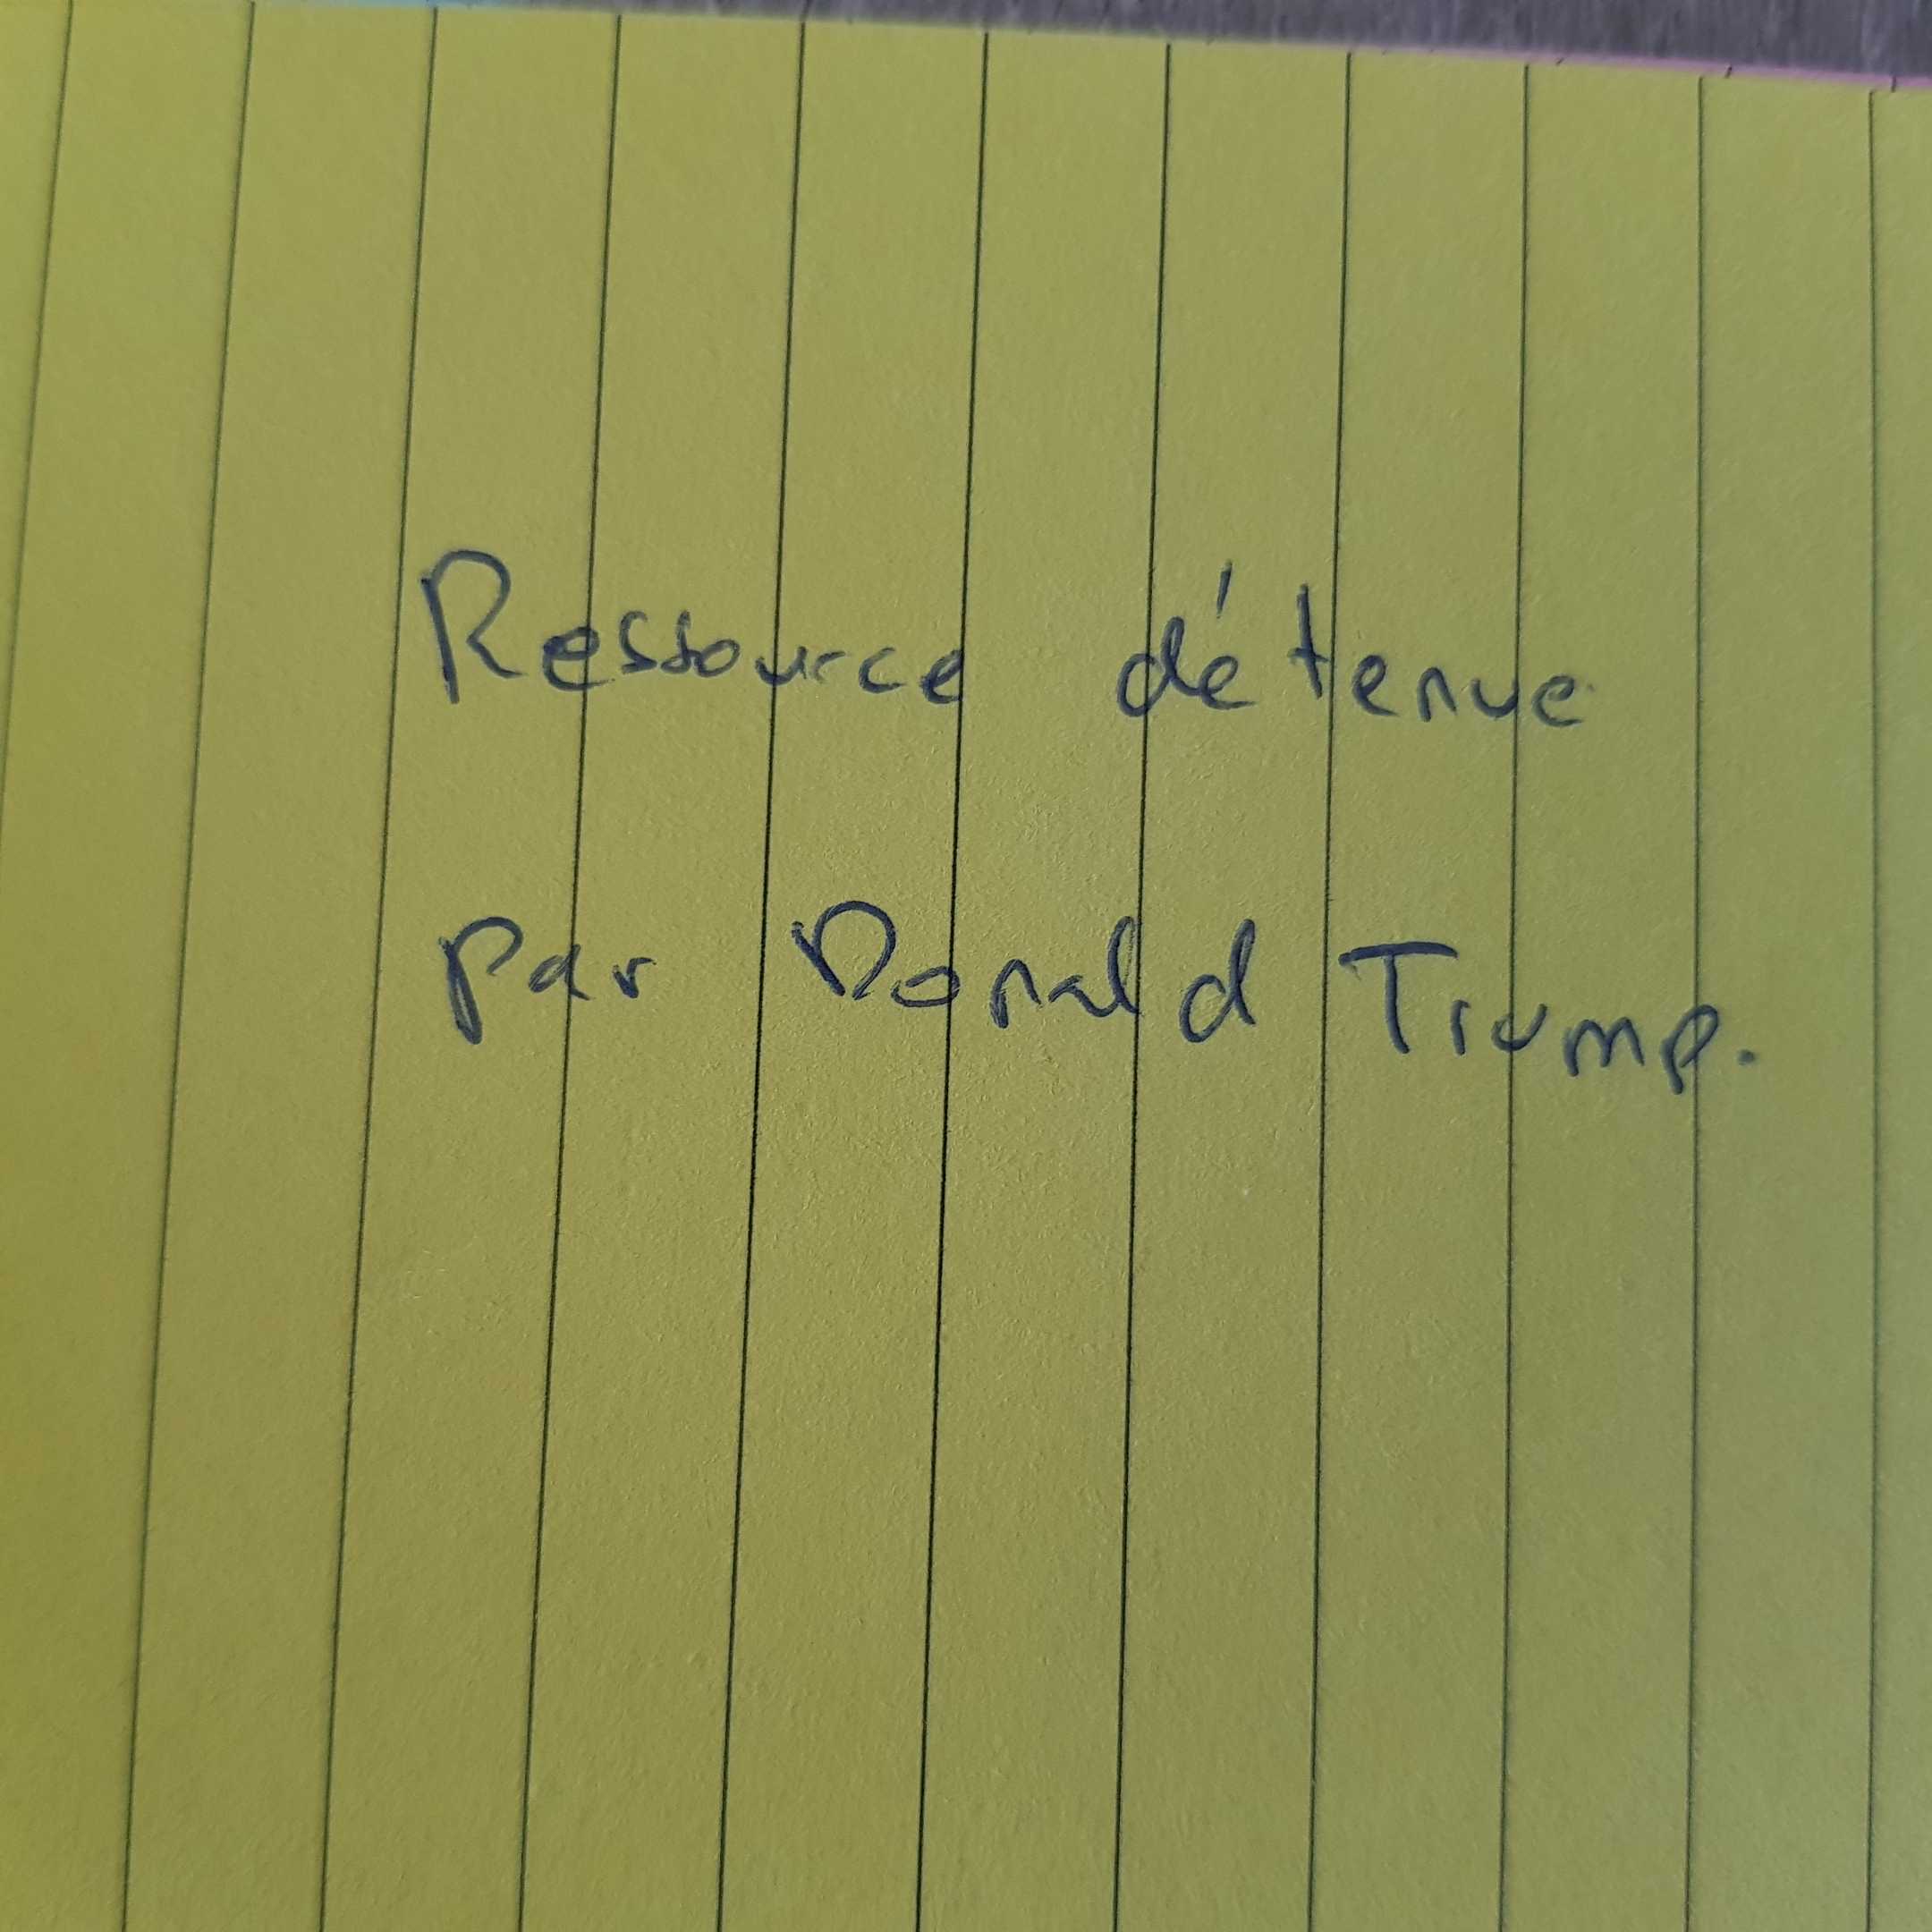 Ressource détenue
par Donald Trump.